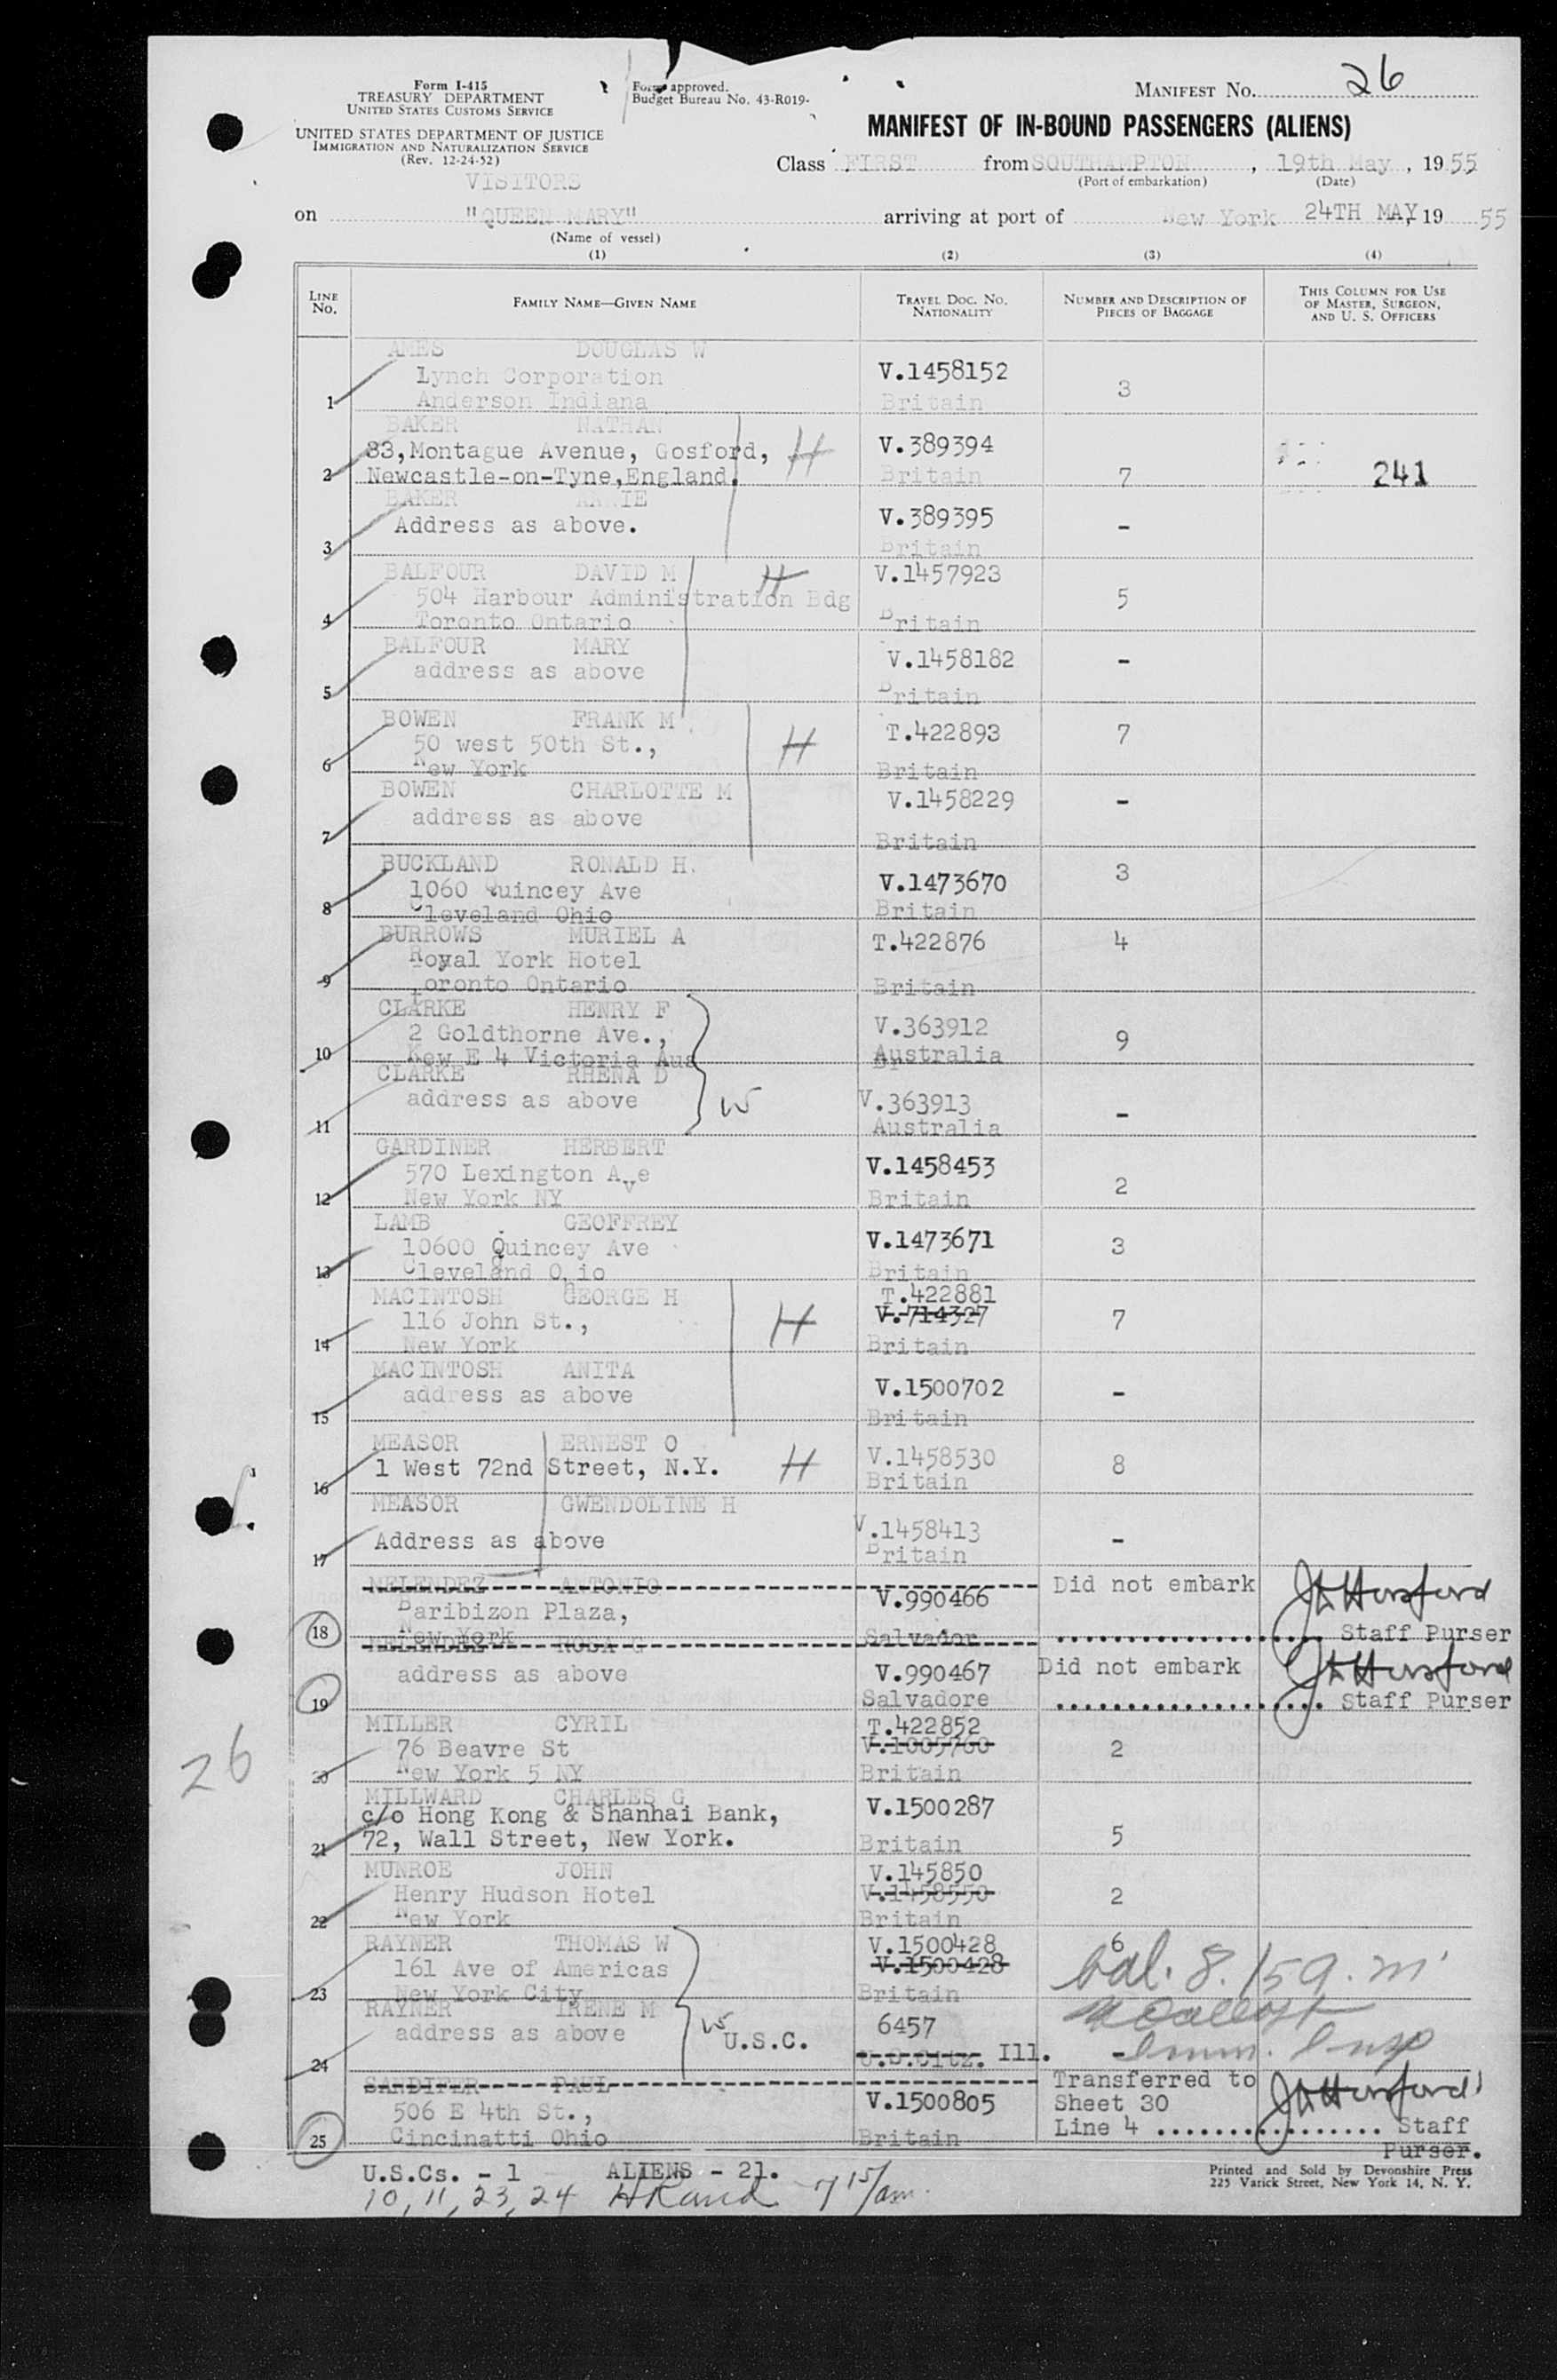 Form I-415
TREASURY DEPARTMENT
UNITED STATES CUSTOMS SERVICE
UNITED STATES DEPARTMENT OF JUSTICE
IMMIGRATION AND NATURALIZATION SERVICE
(Rev. 12-24-52)
VISITORS
Form approved.
Budget Bureau No. 43-R019-
MANIFEST NO. 26
MANIFEST OF IN-BOUND PASSENGERS (ALIENS)
Class FIRST from SOUTHAMPTON, 19th May, 1955
(Port of embarkation) (Date)
on "QUEEN MARY" arriving at port of New York 24TH MAY, 19 55
(Name of vessel)
(1) (2) (3) (4)
LINE NO. FAMILY NAME—GIVEN NAME TRAVEL DOC. NO. NATIONALITY NUMBER AND DESCRIPTION OF PIECES OF BAGGAGE THIS COLUMN FOR USE OF MASTER, SURGEON, AND U. S. OFFICERS
AMES DOUGLAS W
Lynch Corporation V.1458152
1 Anderson Indiana Britain 3
BAKER NATHAN
83,Montague Avenue, Gosford, H V.389394
2 Newcastle-on-Tyne,England. Britain 7 241
BAKER ANNIE
Address as above. V.389395 -
3 Britain
BALFOUR DAVID M H V.1457923
504 Harbour Administration Bdg 5
4 Toronto Ontario Britain
BALFOUR MARY
address as above V.1458182 -
5 Britain
BOWEN FRANK M T.422893 7
50 west 50th St., H
6 New York Britain
BOWEN CHARLOTTE M V.1458229 -
address as above
7 Britain
BUCKLAND RONALD H. 3
1060 Quincey Ave V.1473670
8 Cleveland Ohio Britain
BURROWS MURIEL A T.422876 4
Royal York Hotel
9 toronto Ontario Britain
CLARKE HENRY F
2 Goldthorne Ave., V.363912 9
10 Kew E 4 Victoria Aus Australia
CLARKE RHENA D
address as above W V.363913 -
11 Australia
GARDINER HERBERT
570 Lexington Ave V.1458453 2
12 New York NY Britain
LAMB GEOFFREY
10600 Quincey Ave V.1473671 3
13 Cleveland Ohio Britain
MACINTOSH GEORGE H T.422881
116 John St., H V.714327 7
14 New York Britain
MACINTOSH ANITA
address as above V.1500702 -
15 Britain
MEASOR ERNEST O V.1458530
16 1 West 72nd Street, N.Y. H Britain 8
MEASOR GWENDOLINE H
Address as above V.1458413 -
17 Britain
MELENDEZ ANTONIO Did not embark
Baribizon Plaza, V.990466
18 New York Salvador Staff Purser
MELENDEZ ROSA G
address as above V.990467 Did not embark
19 Salvadore Staff Purser
MILLER CYRIL T.422852
76 Beavre St V.1005760 2
20 New York 5 NY Britain
26
MILLWARD CHARLES G
c/o Hong Kong & Shanhai Bank, V.1500287
21 72, Wall Street, New York. Britain 5
MUNROE JOHN V.145850
Henry Hudson Hotel V.1458550 2
22 New York Britain
RAYNER THOMAS W V.1500428 6
161 Ave of Americas V.1500428
23 New York City Britain
RAYNER IRENE M 6457
address as above W U.S.C.
24 U.S.Citz. Ill. - Imm. Insp
SANDIFER PAUL Transferred to
506 E 4th St., V.1500805 Sheet 30
25 Cincinatti Ohio Britain Line 4 Staff
Purser.
U.S.Cs. - 1 ALIENS - 21.
10, 11, 23, 24 7 15/am.
Printed and Sold by Devonshire Press
225 Varick Street, New York 14, N. Y.